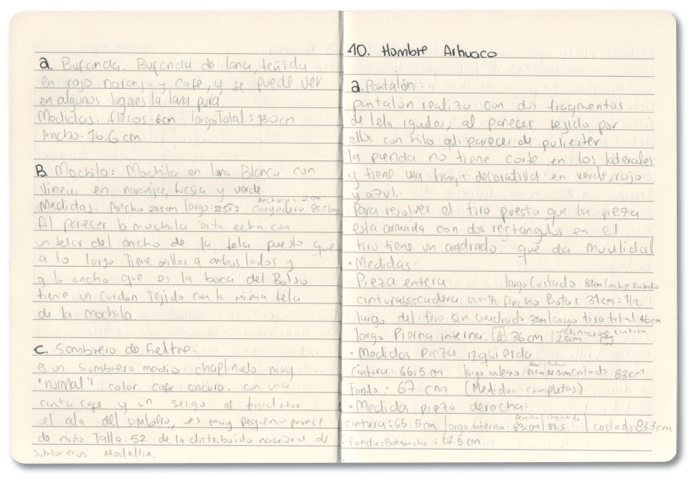 a. Bufanda. Bufanda de lana, teñida
en rojo naranja y café, y se puede ver
en algunos lugares la lana pura
Medidas. flecos: 6cm largo Total: 130cm
Ancho: 16.6 cm
B. Mochila: Mochila en lana Blanca con
lineas en naranja, fucsia y verde
Medidas. Ancho largo cargadera
Al parecer la mochila esta echa con
un telar del ancho de la tela puesto que
a lo largo Tiene orillos a ambos lados y
a lo ancho que es la boca del Bolso
tiene un cordon Tejido con la misma tela
de la mochila
c. Sombrero de fieltro:
es un sombrero medio chaplinado muy
"normal" color cafe oscuro. con una
cinta cafe y un sesgo al
el ala del sombrero, es muy pequeño
de niño Talla: 52 de la nacional de
sombreros Medallin.
10. Hombre Arhuaco
a. Pantalón:
pantalón realiza con dos fragmentos
de tela iguales, al parecer tejido por
ellos con hilo al parecer de poliester
la prenda no tiene corte en los laterales
y tiene una franja decorativa en verde, rojo
y azul.
Para resolver el tiro puesto que la pieza
esta armada con dos rectangulos en el
tiro tiene un cuadrado que da movilidad
• Medidas
Pieza entera largo Costado 83cm
cintura Botas: 31cm: 1/2
largo del tiro sin cuadrado 38cm largo tiro total: 46cm
largo Pierna interna: 36cm
• Medidas pieza izquierda
cintura: 66.5cm largo interno costado 83cm
Fondo: 67 cm (Medidas completas)
• Medida pieza derecha:
cintura: 65.5cm largo interno: 83cm costado 83.3cm
: 62.5cm